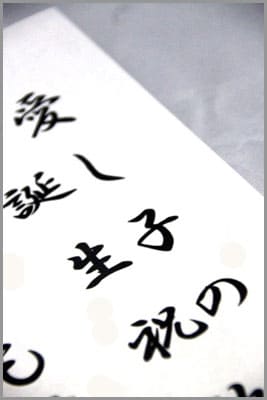 愛し子の
誕生祝